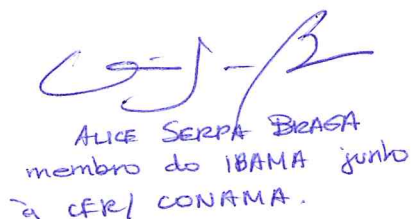 ALICE SERPA BRAGA
membro do IBAMA junto
à CER/ CONAMA.